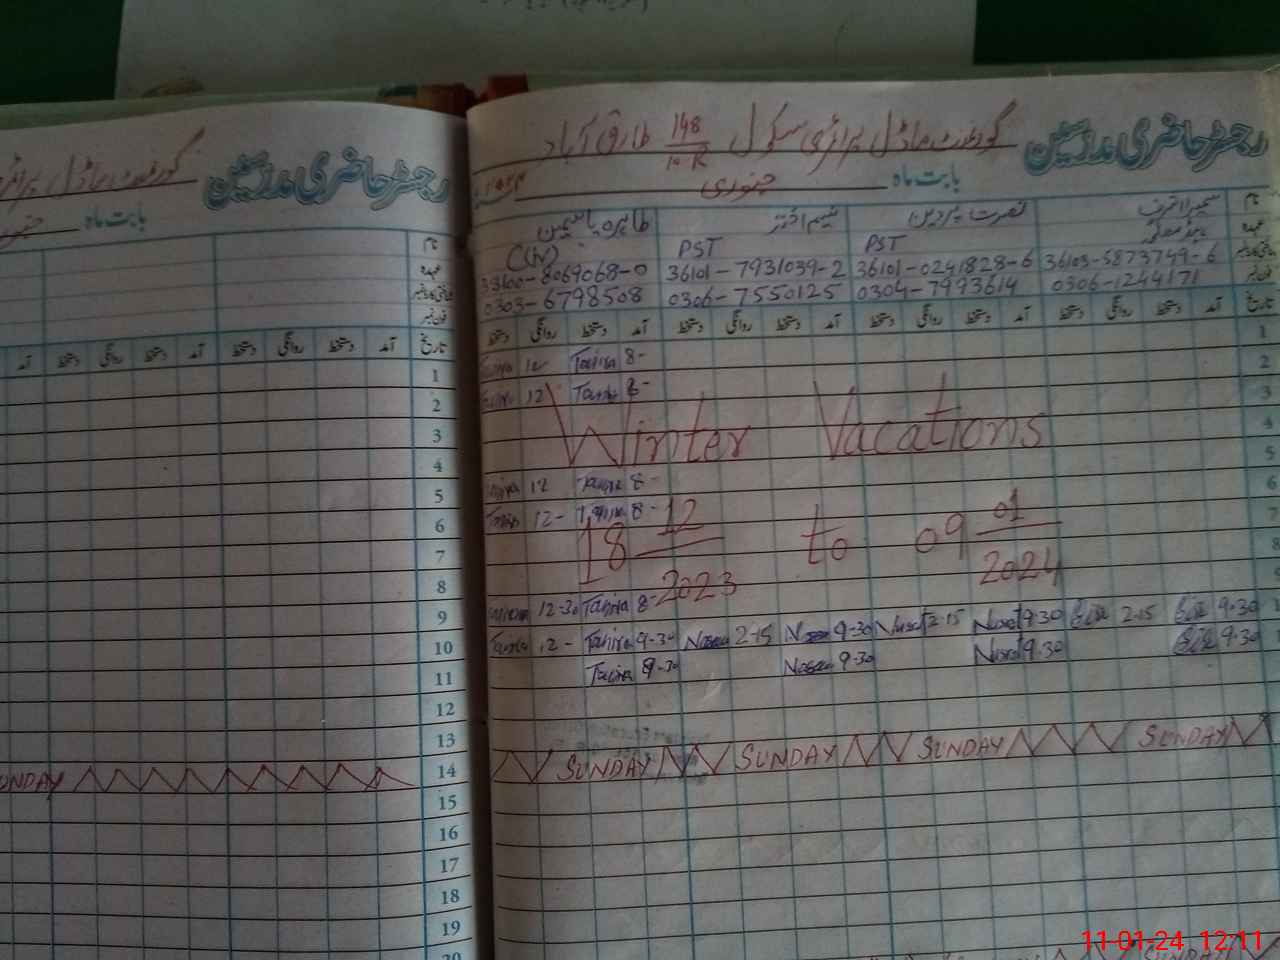 رجسٹر حاضری مدرسین
گورنمنٹ ماڈل پرائمری سکول 148/10R طارق آباد
بابت ماہ جنوری
نام
سمیرا اشرف
نصرت پروین
نسیم اختر
طاہرہ یاسمین
عہدہ
PST
PST
C(IV)
36103-5873749-6
36101-0241828-6
36101-7931039-2
0306-1244171
0304-7993614
0306-7550125
0303-6798508
تاریخ آمد دستخط روانگی دستخط آمد دستخط روانگی دستخط آمد دستخط روانگی دستخط آمد دستخط روانگی دستخط
1 Tahira 8- 12-
2 Tahira 8- 12
3
4
5 Tahira 8- 12
6 Tahira 8- 12-
7
8
Winter Vacations
18 12 2023 to 09 01 2024
9 Tahira 8- 12-30
10 9.30 2.15 Nusrat 9.30 2.15 9-30 2-15 Tahira 9-30 12-
11 9.30 Nusrat 9.30 9.30 Tahira 9-30
12
13
14 SUNDAY SUNDAY SUNDAY SUNDAY
15
16
17
18
19
20
SUNDAY
رجسٹر حاضری مدرسین
گورنمنٹ ماڈل
بابت ماہ
نام
عہدہ
تاریخ آمد دستخط روانگی دستخط آمد دستخط روانگی دستخط آمد
SUNDAY
11-01-24 12:11